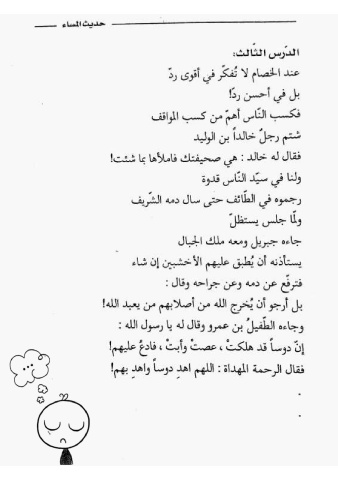 حديث المساء
الدّرس الثّالث:
عند الخصام لا تُفكّر في أقوى ردّ
بل في أحسن ردّ!
فكسب النّاس أهمّ من كسب المواقف
شتم رجلٌ خالداً بن الوليد
فقال له خالد : هي صحيفتك فاملأها بما شئت!
ولنا في سيّد النّاس قدوة
رجموه في الطّائف حتى سال دمه الشّريف
ولمّا جلس يستظلّ
جاءه جبريل ومعه ملك الجبال
يستأذنه أن يُطبق عليهم الأخشبين إن شاء
فترفّع عن دمه وعن جراحه وقال :
بل أرجو أن يُخرج الله من أصلابهم من يعبد الله!
وجاءه الطّفيلُ بن عمرو وقال له يا رسول الله :
إنّ دوساً قد هلكتْ ، عصتْ وأبتْ ، فادعُ عليهم!
فقال الرحمة المهداة : اللهم اهدِ دوساً واهدِ بهم!
.
.